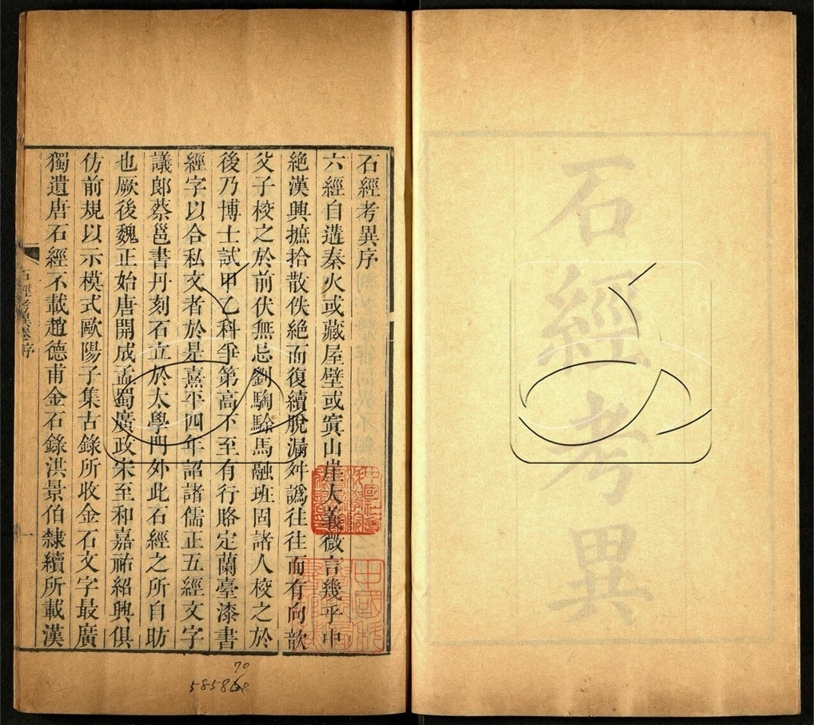 石經考異
石經考異序
六經自遘秦火或藏屋壁或寘山崖大義微言幾乎中
絶漢興摭拾散佚絶而復續脫漏舛譌往往而有向歆
父子校之於前伏無忌劉騊駼馬融班固諸人校之於
後乃博士試甲乙科爭第高下至有行賂定蘭臺漆書
經字以合私文者於是熹平四年詔諸儒正五經文字
議郎蔡邕書丹刻石立於太學門外此石經之所自昉
也厥後魏正始唐開成孟蜀廣政宋至和嘉祐紹興俱
仿前規以示模式歐陽子集古錄所收金石文字最廣
獨遺唐石經不載趙德甫金石錄洪景伯隸續所載漢
石經考異序
一